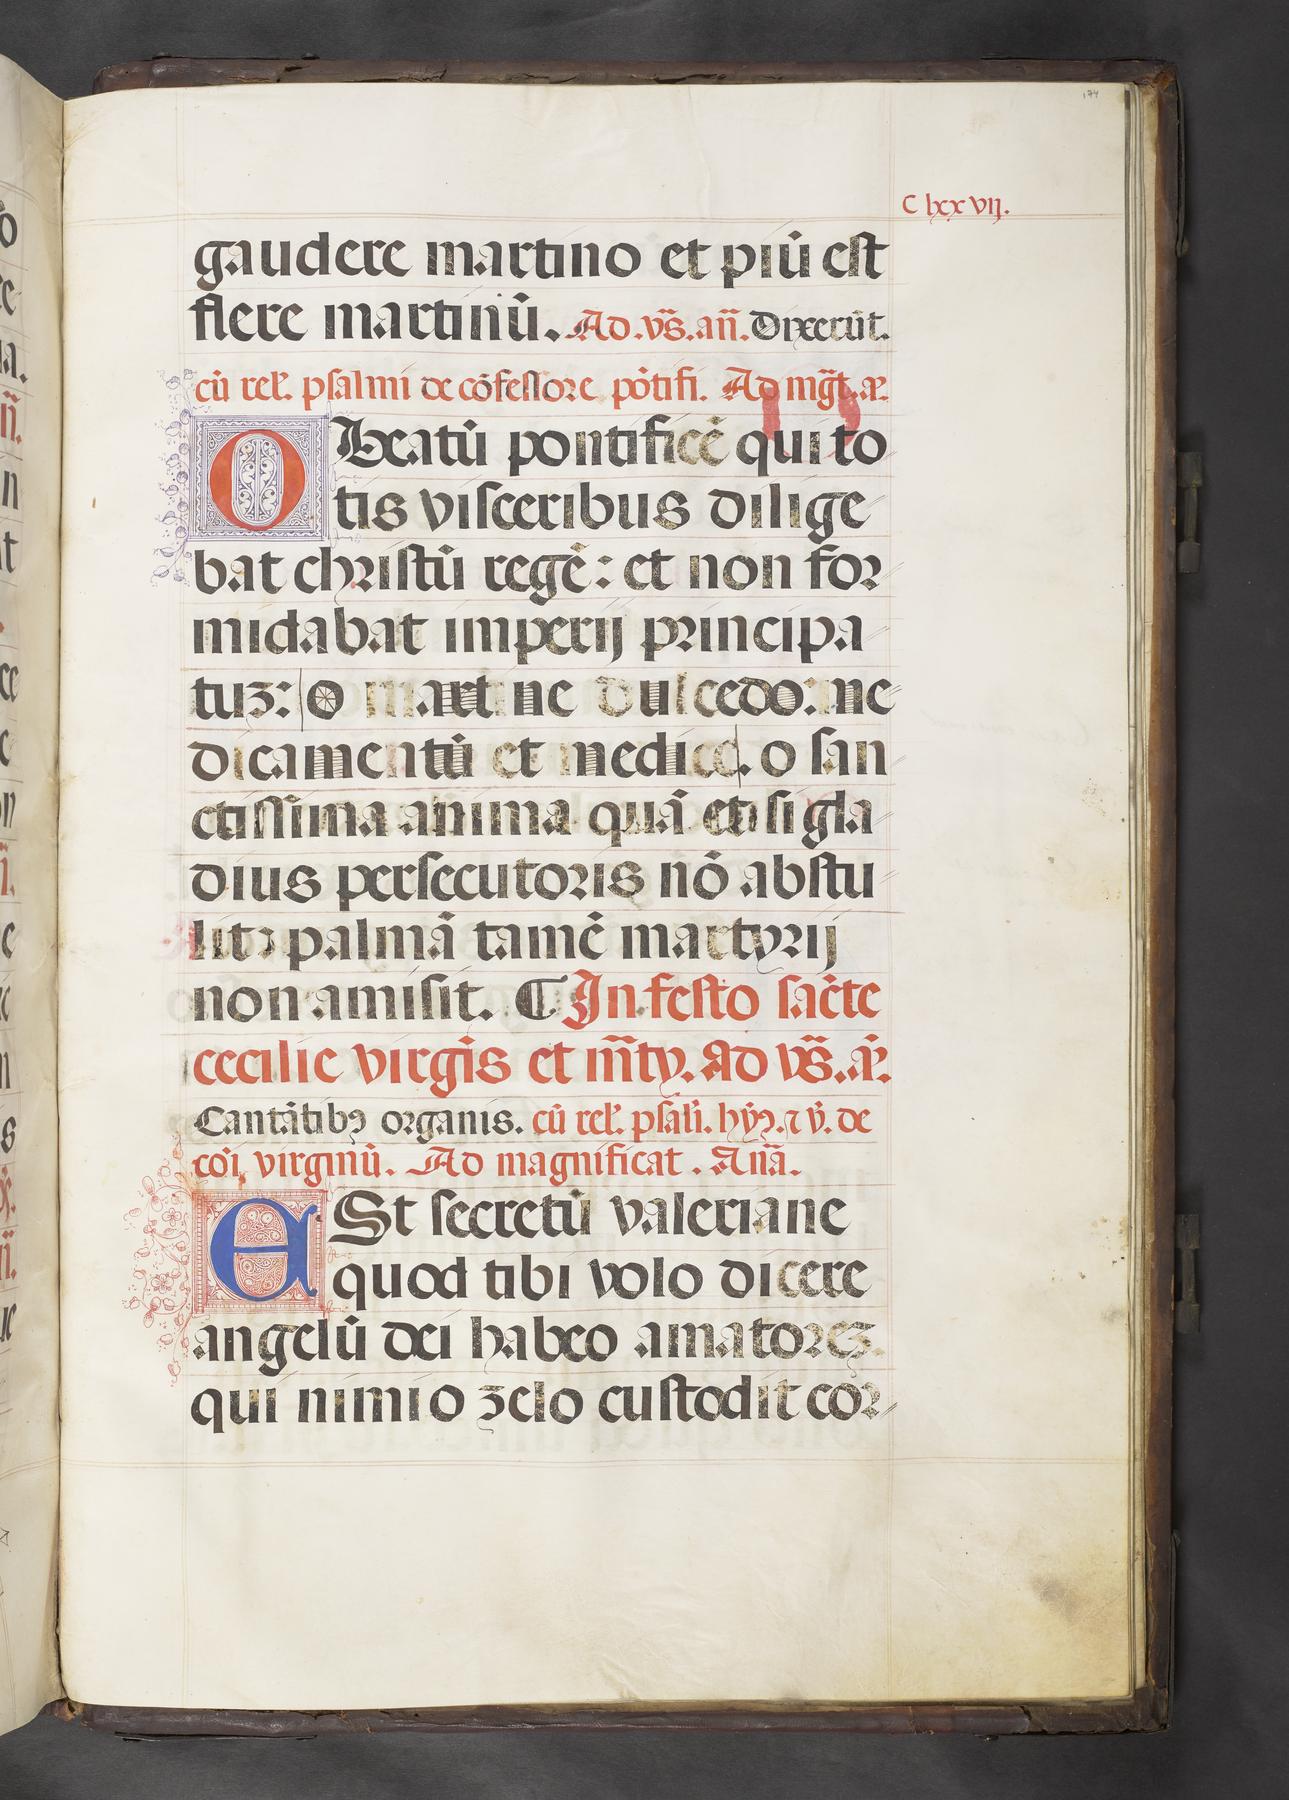 174
C lxxvij.
gaudere martino et piū est
flere martinū. Ad. vs̄. an̄. Dixerūt.
cū rel'. psalmi de cōfessore pōtifi. Ad mḡt. a'.
O Beatū pontificē qui to
tis visceribus dilige
bat christū regē: et non for
midabat imperij principa
tuz: o martine dulcedo: me
dicamentū et medice. o san
ctissima anima quā etsi gla
dius persecutoris nō abstu
lit: palmā tamē martyrij
non amisit. ¶ In festo sācte
cecilie virgīs et m̄ty. Ad vs̄. a'.
Cantātibꝰ organis. cū rel'. psal'. hyꝫ. ⁊ v̇. de
cōi virginū. Ad magnificat. Anā.
ESt secretū valeriane
quod tibi volo dicere
angelū dei habeo amatorez
qui nimio zelo custodit cor